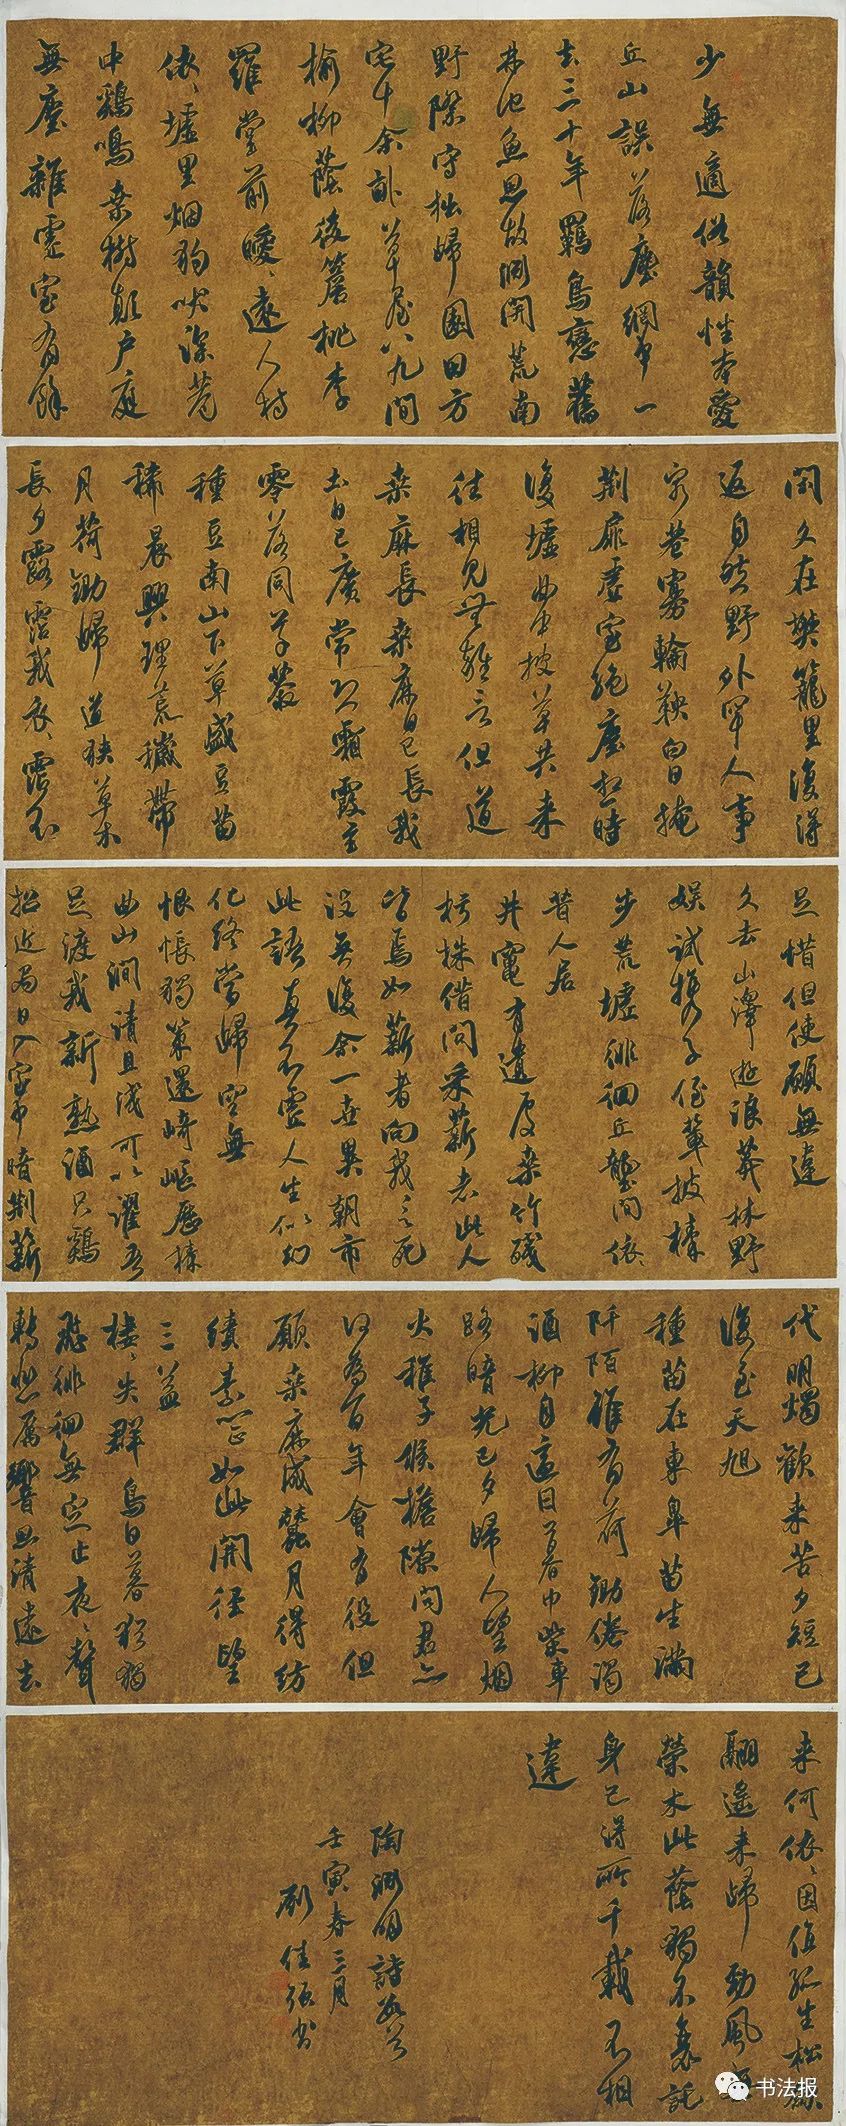 少無適俗韻性本愛
丘山誤落塵網中一
去三十年羈鳥戀舊
林池魚思故淵開荒南
野際守拙歸園田方
宅十余畝草屋八九間
榆柳蔭後簷桃李
羅堂前曖〻遠人村
依〻墟里烟狗吠深巷
中鷄鳴桑樹顛户庭
無塵雜虛室有餘
閑久在樊籠里復得
返自然野外罕人事
窮巷寡輪鞅白日掩
荆扉虛室絶塵想時
復墟曲中披草共来
往相見無雜言但道
桑麻長桑麻日已長我
土日已廣常恐霜霰至
零落同草莽
種豆南山下草盛豆苗
稀晨興理荒穢帶
月荷鋤歸道狹草木
長夕露霑我衣〻霑不
足惜但使願無違
久去山澤遊浪莽林野
娱試携子侄輩披榛
步荒墟徘徊丘壟間依〻
昔人居
井竈有遺處桑竹殘
朽株借問采薪者此人
皆焉如薪者向我言死
没無復余一世異朝市
此語真不虛人生似幻
化終當歸空無
恨悵獨策還崎嶇歷榛
曲山澗清且淺可以濯吾
足漉我新熟酒只鷄
招近局日入室中暗荆薪
代明燭歡来苦夕短已
復至天旭
種苗在東皐苗生滿
阡陌雖有荷鋤倦濁
酒聊自適日暮巾柴車
路暗光已夕歸人望烟
火稚子候檐隙問君亦
何為百年會有役但
願桑麻成蠶月得紡
績素心正如此開徑望
三益
棲〻失群鳥日暮猶獨
飛徘徊無定止夜〻聲
轉悲厲響思清遠去
来何依〻因值孤生松斂
翮遥来歸勁風無
榮木此蔭獨不衰託
身已得所千載不相
違
陶淵明詩數首
壬寅春三月
劉佳張書
书法报